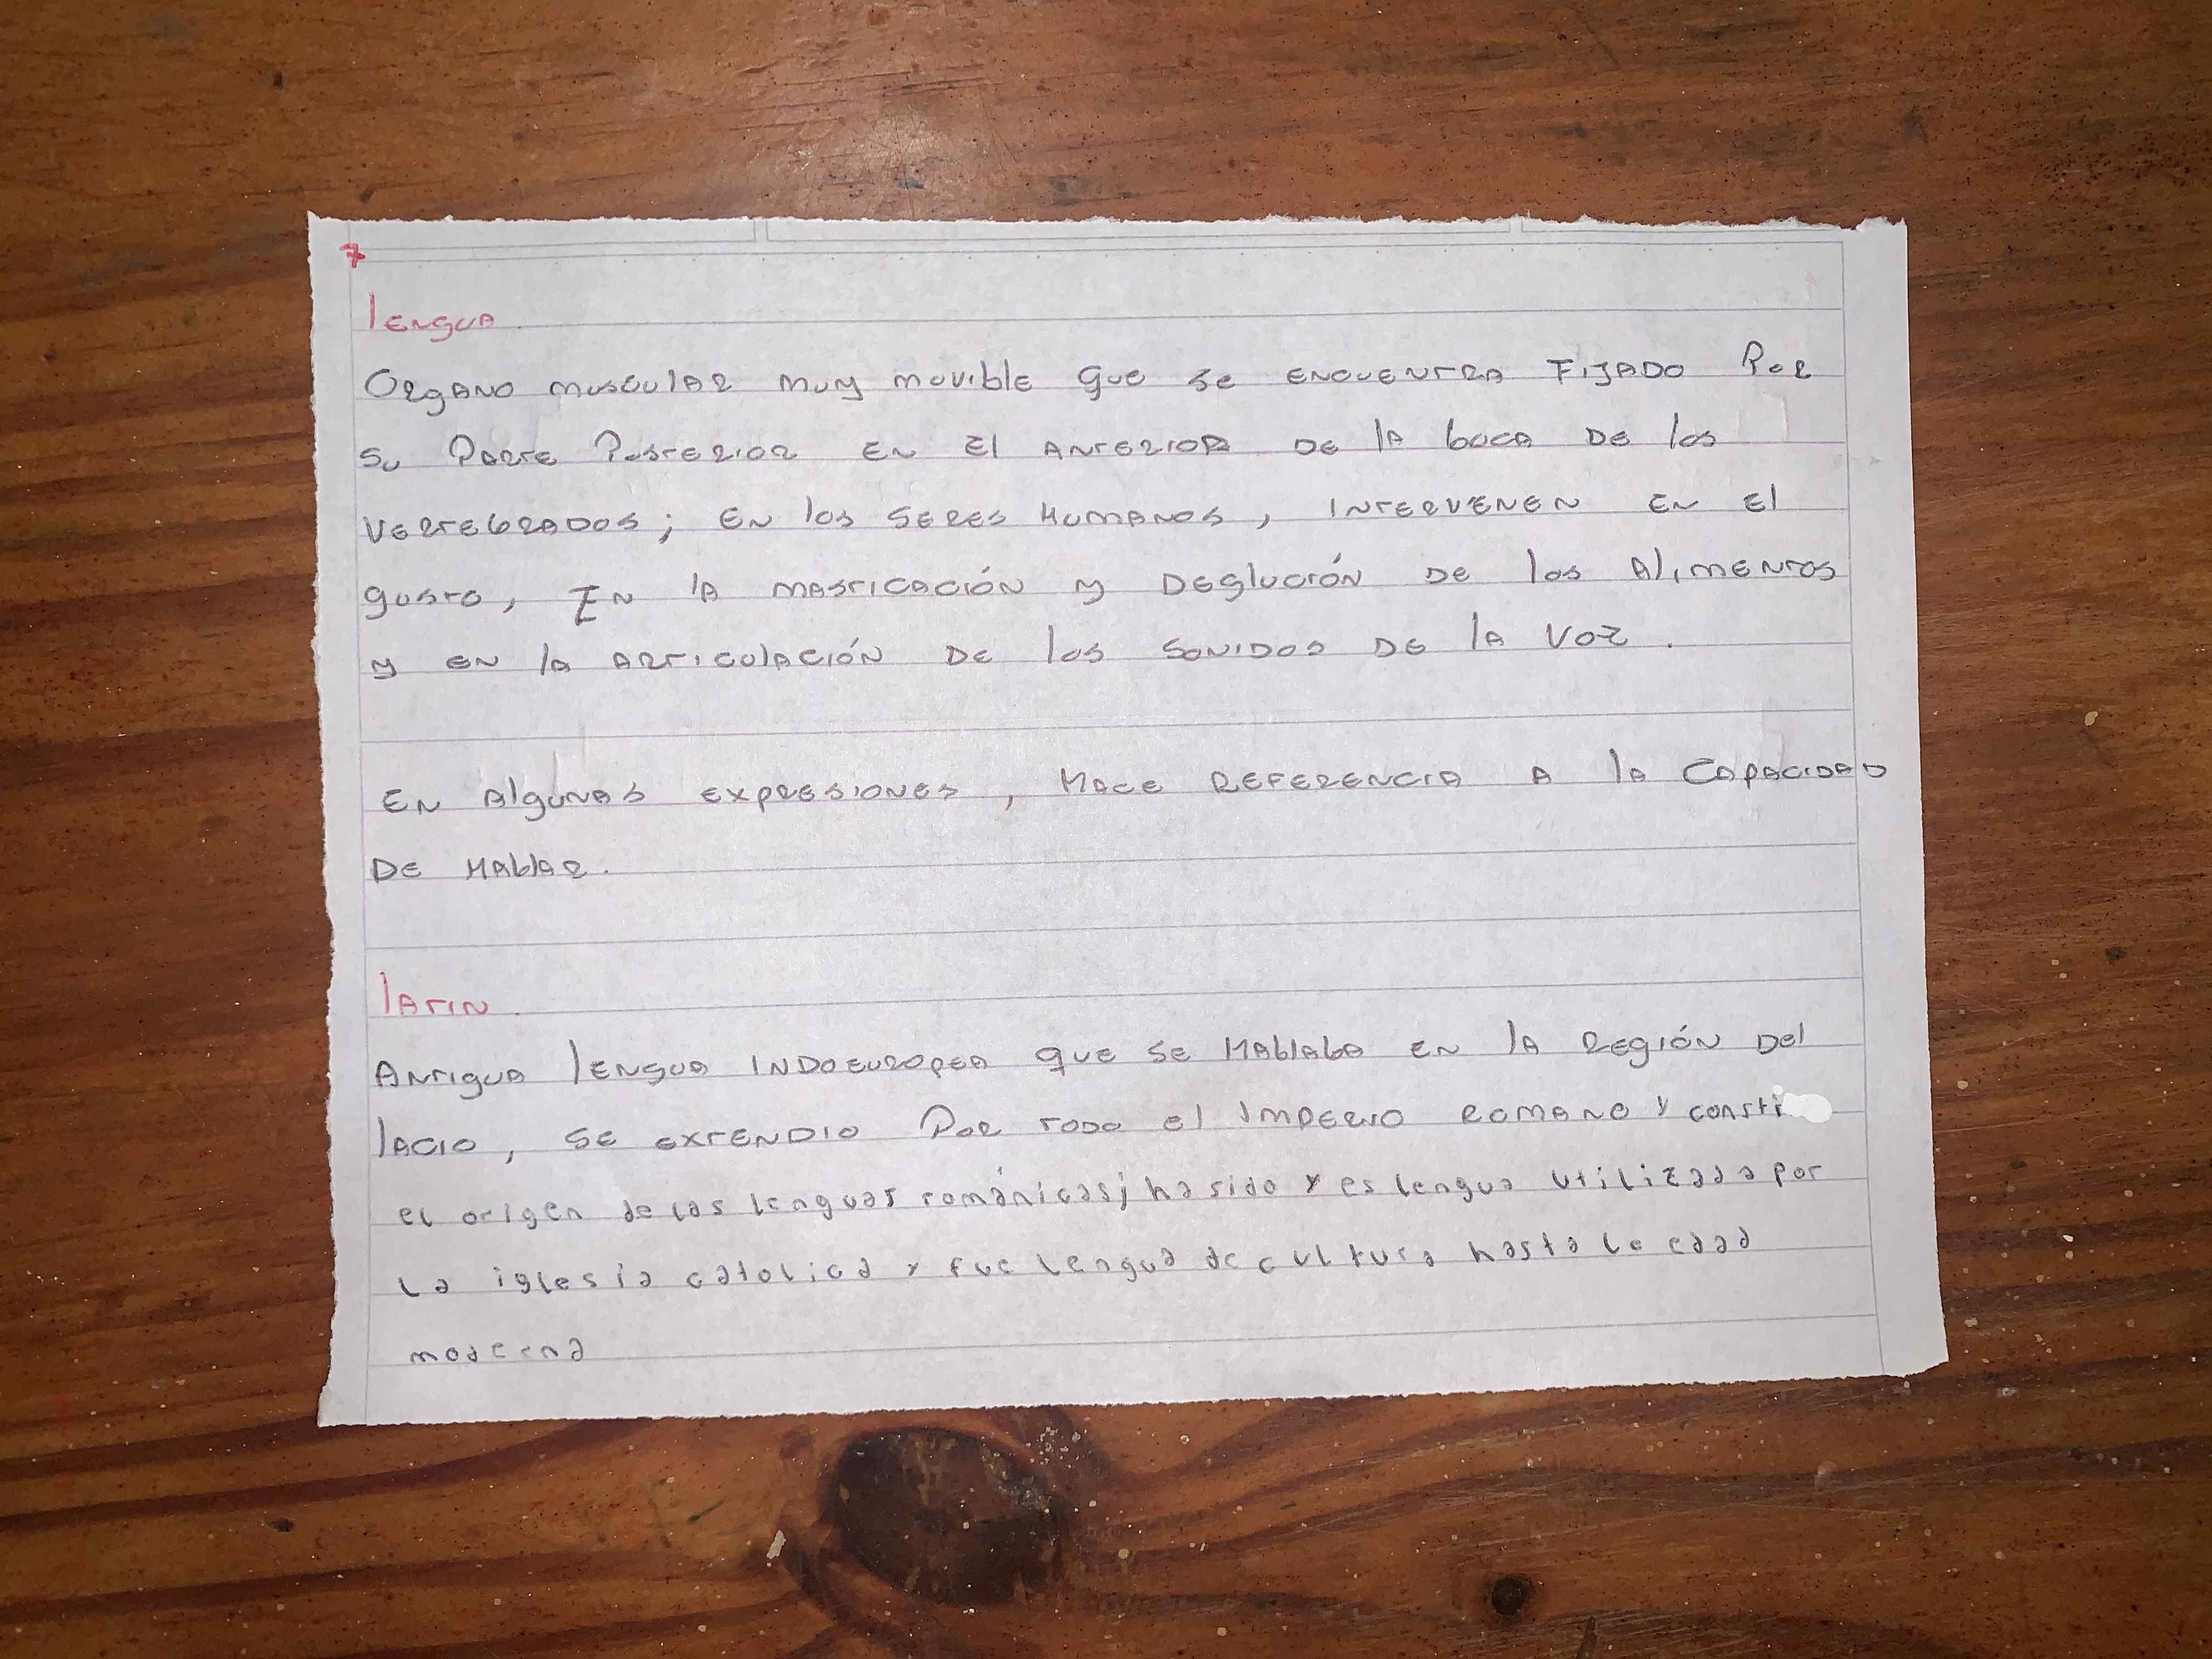 7
lengua
Organo muscular muy movible que se encuentra fijado por
su parte posterior en el anterior de la boca de los
vertebrados; en los seres humanos, intervenen en el
gusto, En la masticación y deglución de los alimentos
y en la articulación de los sonidos de la voz.
En algunas expresiones, hace referencia a la capacidad
de hablar.
latin.
Antigua lengua indoeuropea que se hablaba en la región del
lacio, se extendio por todo el imperio romano y consti
el origen de las lenguas románicas; ha sido y es lengua utilizada por
la iglesia catolica y fue lengua de cultura hasta la edad
moderna